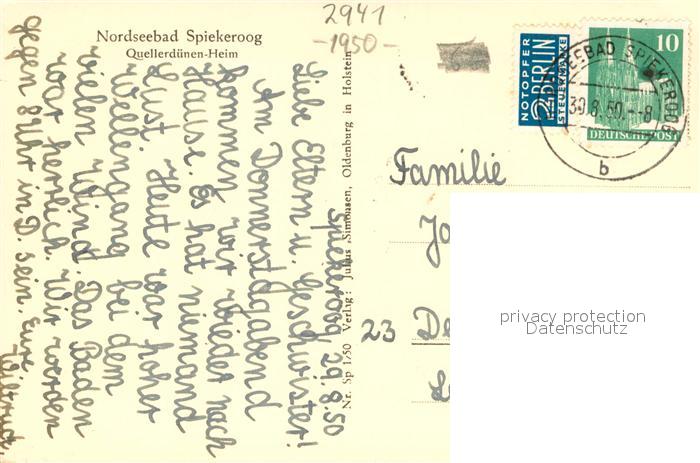 2941
-1950-
Nordseebad Spiekeroog
Quellerdünen-Heim
Spiekeroog 29.8.50
Liebe Eltern u. Geschwister!
Am Donnerstagabend
kommen wir wieder nach
Hause. Es hat niemand
Lust. Heute war hoher
Wellengang bei dem
vielen Wind. Das Baden
war herrlich. Wir werden
gegen 8 Uhr in D. sein. Eure
Wiltrud.
Nr. Sp 1/50 Verlag: Julius Simonsen, Oldenburg in Holstein
NOTOPFER
2 BERLIN
STEUERMARKE
10
DEUTSCHE POST
NORDSEEBAD SPIEKEROOG
30.8.50.-8
b
Familie
Jo
23 De
privacy protection
Datenschutz